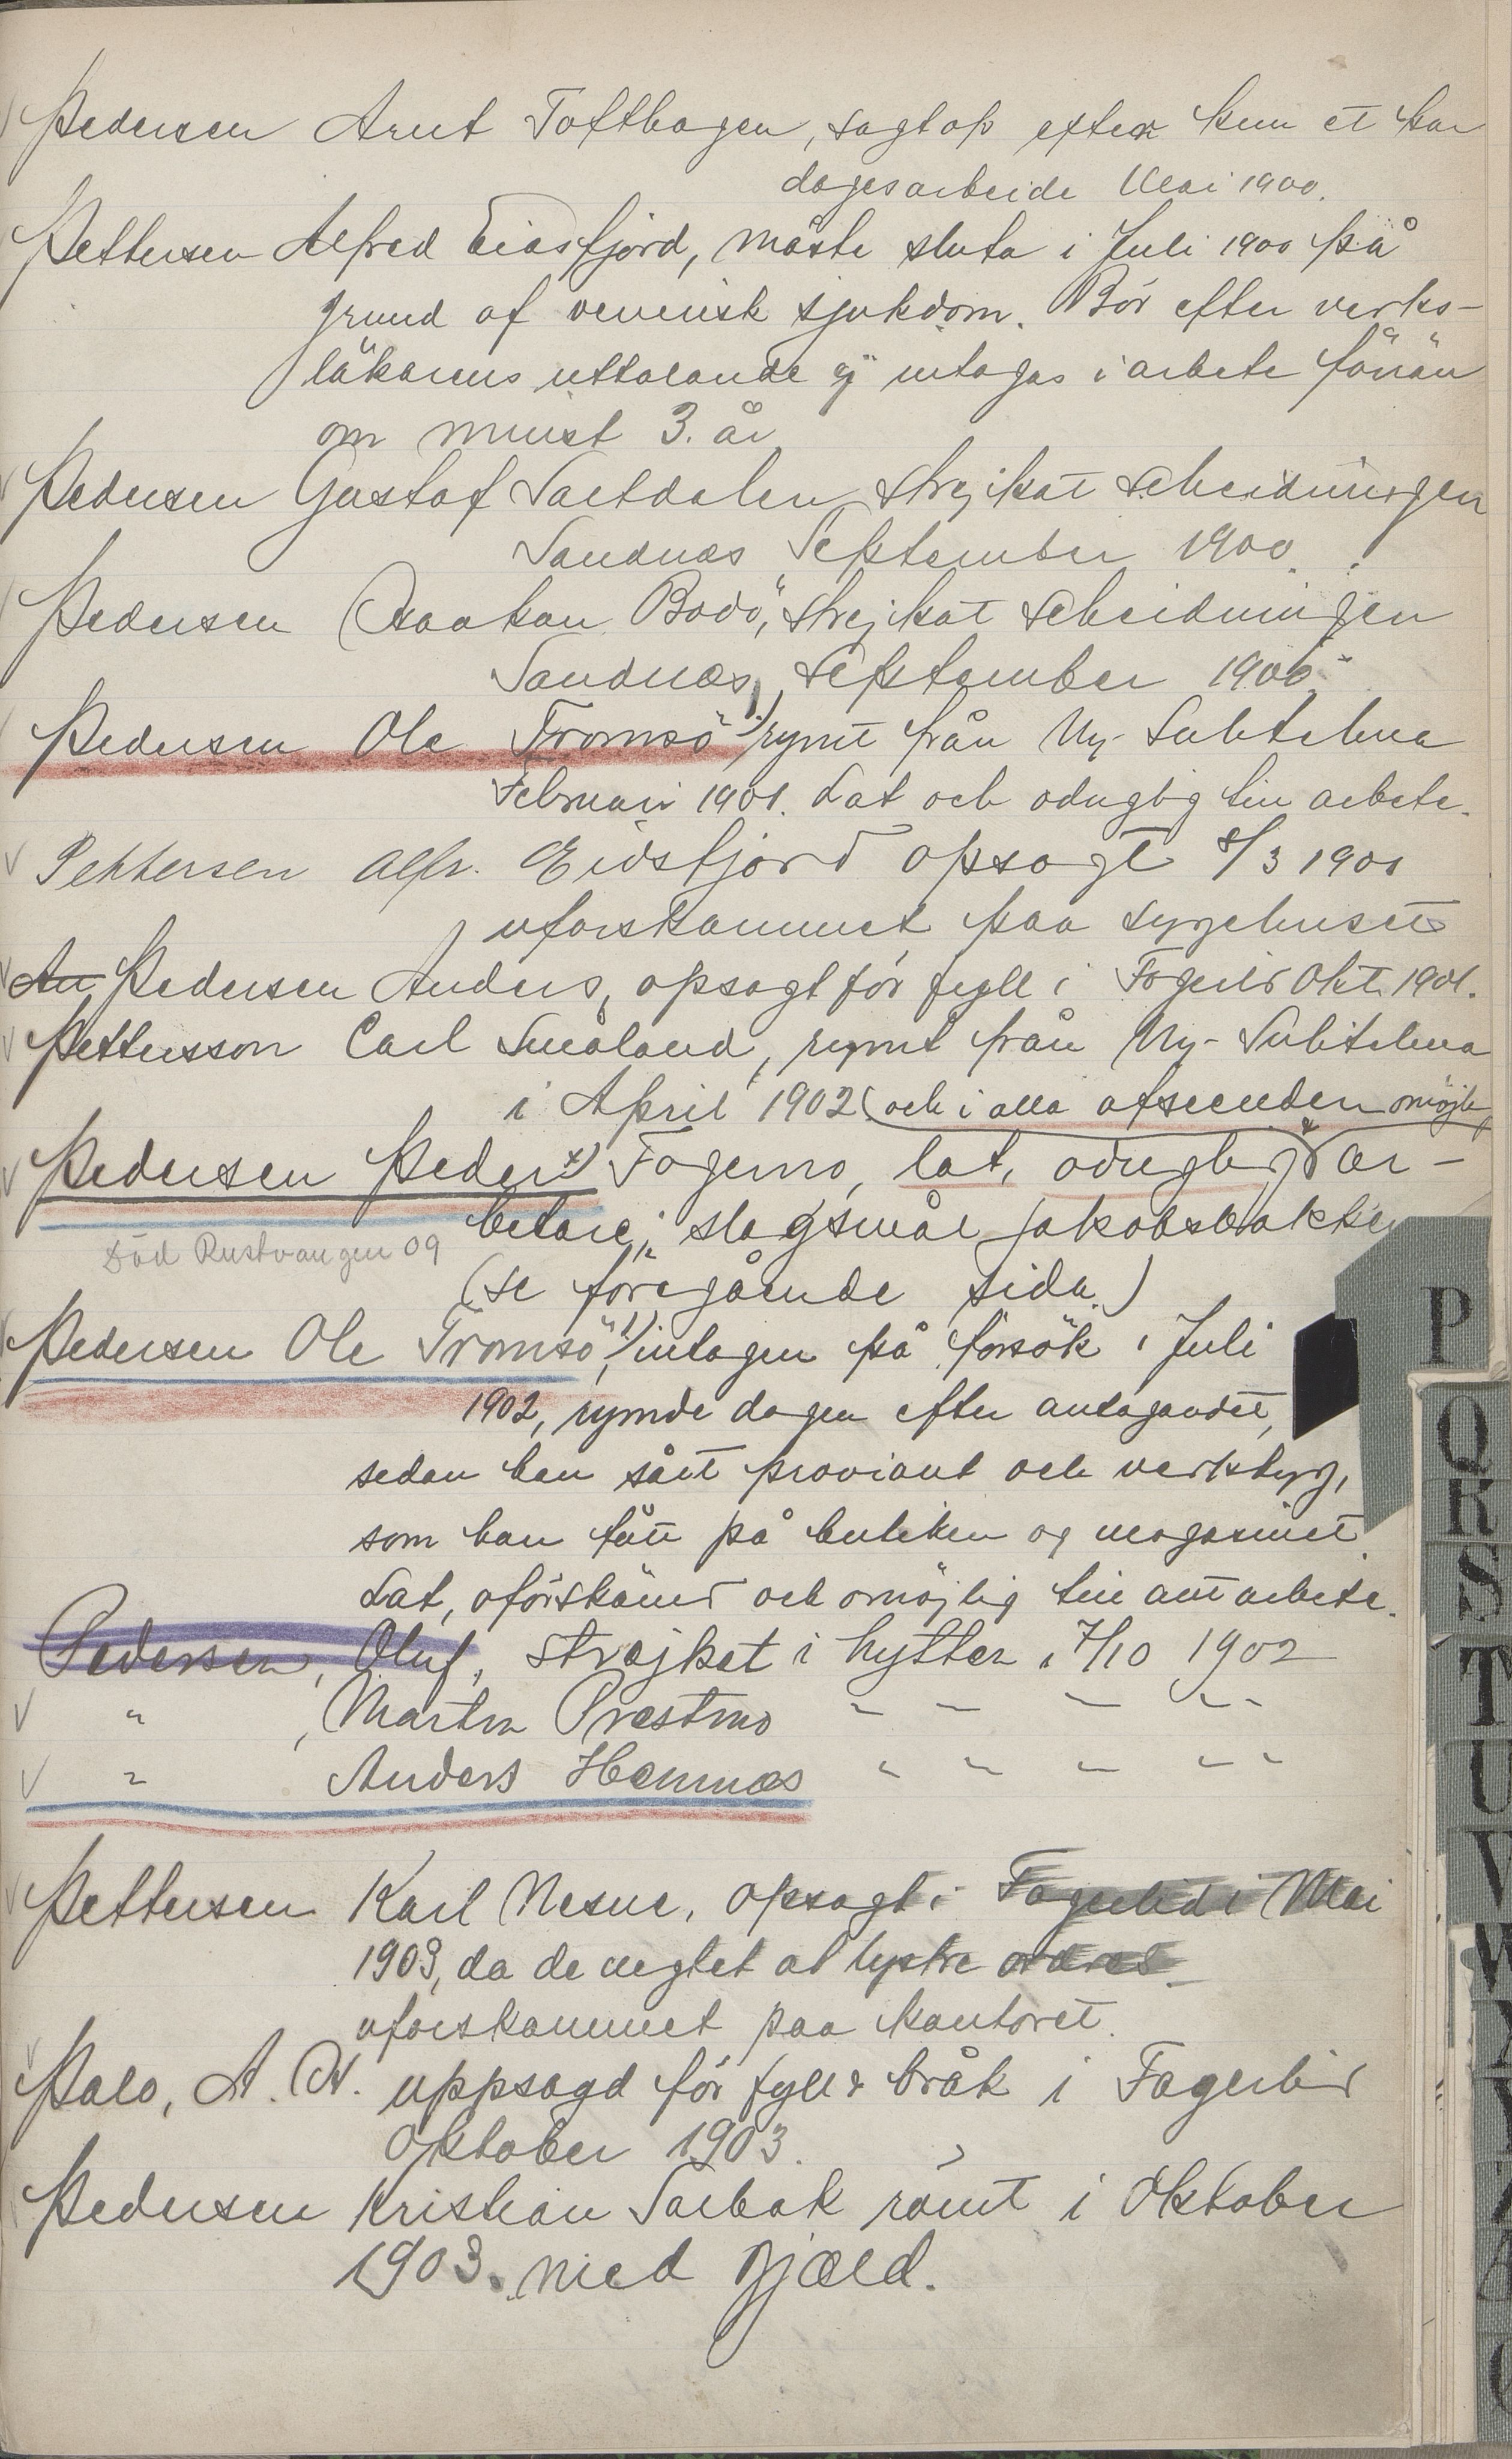 Pedersen Arnt Tofthagen, sagt op efter kun et par
dages arbeide Mai 1900.
Pettersen Alfred Eidsfjord, måste sluta i Juli 1900 på
grund af venerisk sjukdom. Bör efter verks-
läkarens uttalande ej intagas i arbete förrän
om minst 3. år
Pedersen Gustaf Saltdalen strejkat scheidningen
Sandnæs September 1900.
Pedersen Haakan Bodö, strejkat scheidningen
Sandnæs, September 1900.
Pedersen Ole Tromsö 1) rymt från Ny-Sulitelma
Februari 1901. Lat och oduglig till arbete.
Pettersen Alfr. Eidsfjord opsagt 8/3 1901
uforskammet paa sygehuset
An Pedersen Anders, opsagt för fyll i Fagerlid Okt. 1901.
Pettersson Carl Småland, rymt från Ny-Sulitelma
i April 1902 (och i alla afseenden omöjlig
Pedersen Peder x) Fagermo, lat, oduglig ar-
betare; slagsmål Jakobsbakken
Död Rustvangen 09
(se föregående sida.)
Pedersen Ole Tromsö, 1) intagen på försök i Juli
1902, rymde dagen efter antagandet,
sedan han sålt proviant och verktyg,
som han fått på butiken og magasinet.
Lat, oförskämd och omöjlig till att arbete.
Pedersen, Oluf, strejket i hytten, 7/10 1902
" , Martin Prestmo " " " " "
" Anders Hemnæs " " " " "
Pettersen Karl Nesne, opsagt i Fagerlid i Mai
1903, da de negtet at lystre ordres
uforskammet paa kontoret.
Palo, A. W. uppsagd för fyll & bråk i Fagerlid
Oktober 1903.
Pedersen Kristian Sørbak römt i Oktober
1903. med Gjæld.
P
Q
R
S
T
U
V
W